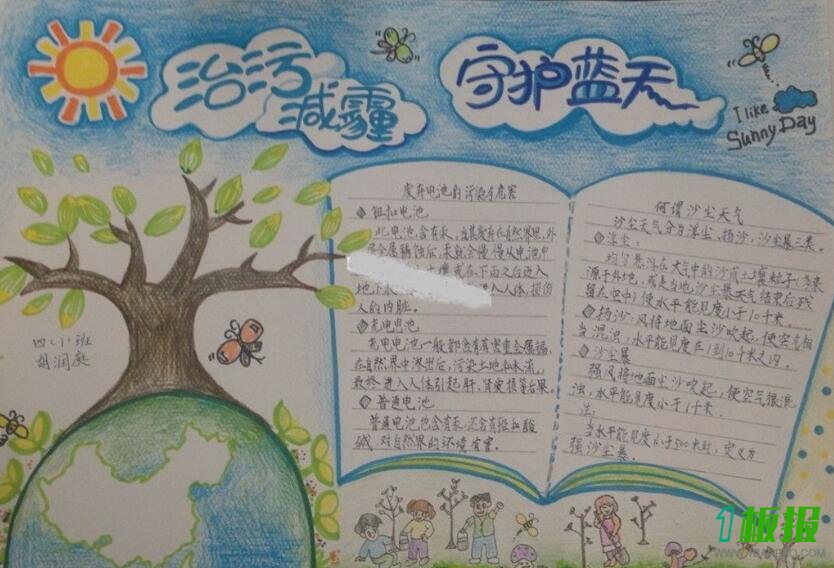 治污
减霾
守护蓝天
I like
Sunny Day
四(1)班
胡润庭
废弃电池的污染与危害
◆钮扣电池
此电池含有汞,当其废弃在自然界里,外
层金属锈蚀后,汞就会慢慢从电池中
土壤或在下雨之后进入
地下水 进入人体,损伤
人的内脏。
◆充电电池
充电电池一般都含有有害重金属镉,
在自然界中渗出后,污染土地和水流,
最终进入人体引起肝、肾变损等后果。
◆普通电池
普通电池也含有汞,还含有锰和酸
碱,对自然界的环境有害。
何谓沙尘天气
沙尘天气分为浮尘,扬沙,沙尘暴三类。
◆浮尘:
均匀悬浮在大气中的沙或土壤粒子(多来
源于外地,或是当地沙尘暴天气结束后残
留在空中)使水平能见度小于10千米。
◆扬沙:风将地面尘沙吹起,使空气相
当混浊,水平能见度在1到10千米之内。
◆沙尘暴
强风将地面尘沙吹起,使空气很混
浊,水平能见度小于1千米。
注:
当水平能见度小于500米时,定义为
强沙尘暴。
1板报
WWW.1BANBAO.COM